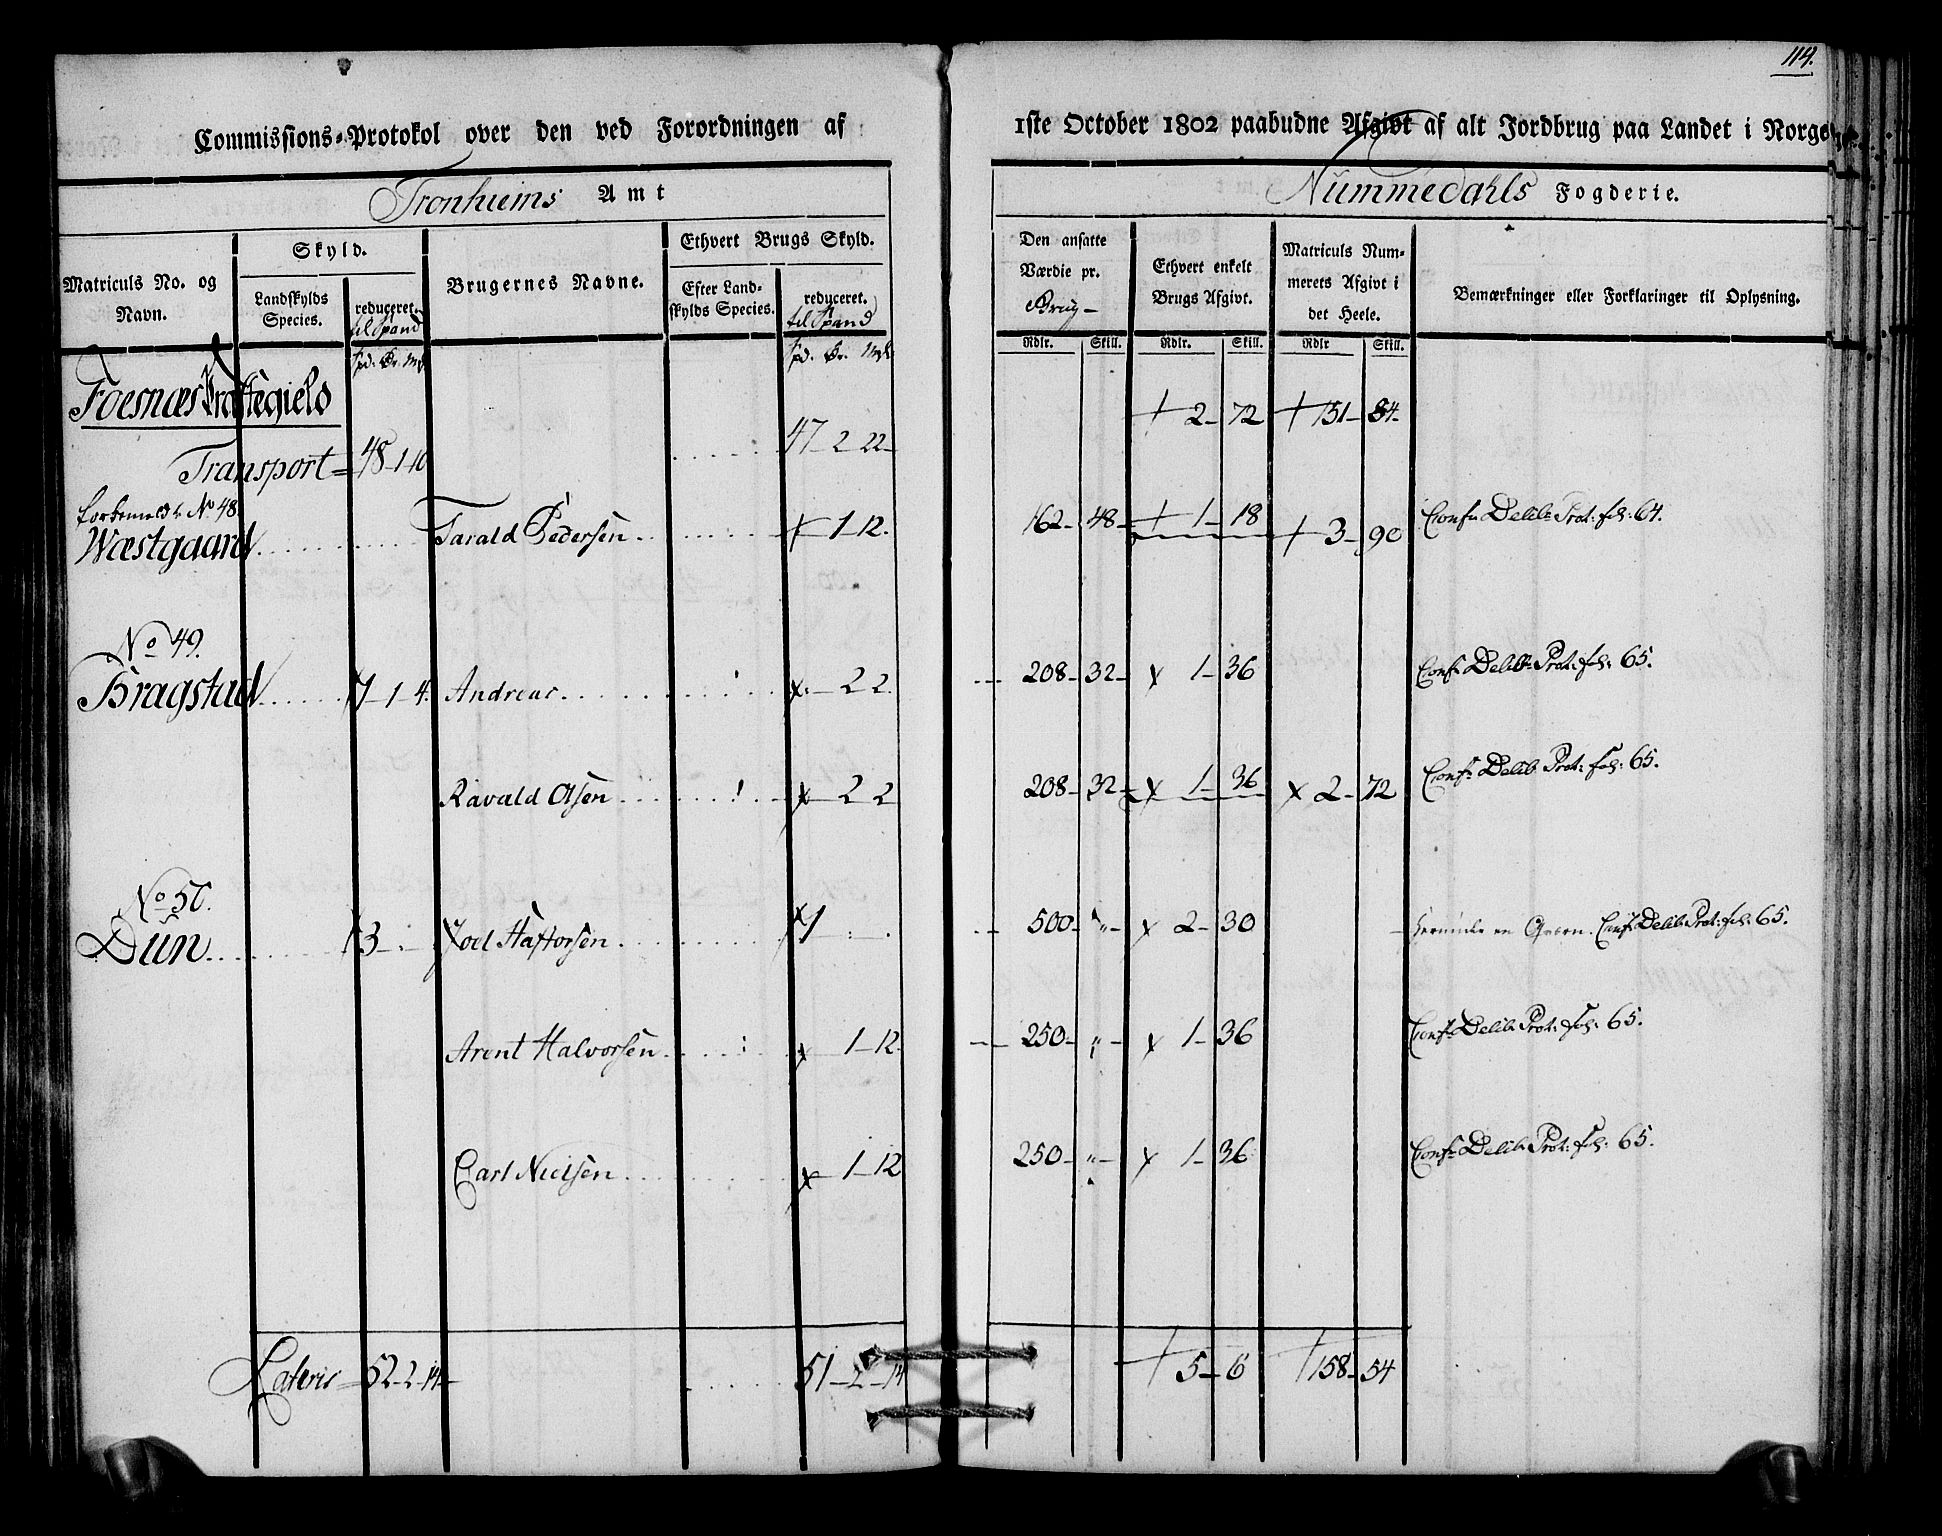 114.
Commissions-Protokol over den ved Forordningen af 1ste October 1802 paabudne Afgivt af alt Jordbrug paa Landet i Norge
Tronhiems Amt Nummedahls Fogderie.
Matriculs No. og Navn. Skyld. Brugernes Navne. Ethvert Brugs Skyld. Den ansatte Værdie pr. Brug Ethvert enkelt Brugs Afgivt. Matriculs Nummerets Afgivt i det Heele. Bemærkninger eller Forklaringer til Oplysning.
Landskylds Species. reduceret. til Spand Efter Landskylds Species. reduceret. til Spand
Rdlr. Skill. Rdlr. Skill. Rdlr Skill.
Spd. Ør. Mk. Spd. Ør. Mk.
Foesnæs Præstegield
+ 2 - 72 + 151 - 84
Transport = 48-1-10 47-2-22
No 48.
Wæstgaard Tarald Pedersen + 1-12. 162 - 48 + 1 - 18 + 3 - 90 Conf: Delib: Prot: fol: 64.
No 49.
Bragstad 1-1-4. Andreas x - 2 2. 208 - 32 x 1 - 36 Conf: Delib: Prot: fol: 65.
Ravald Olsen x 2 2 208 - 32 x 1 - 36 x 2 - 72 Conf: Delib: Prot: fol: 65.
No 50.
Dün 3 - Joel Haftorsen x 1 500 - " x 2 - 30 herunder en Qværn. Conf: Delib: Prot: fol: 65.
Arent Halvorsen x 1-12 250 - " x 1 - 36 Conf: Delib: Prot: fol: 65.
Carl Nielsen x 1-12 250 - " x 1 - 36 Conf: Delib: Prot: fol: 65.
Lateris 52-2-14 51-2-14 + 5 - 6 + 158 - 54